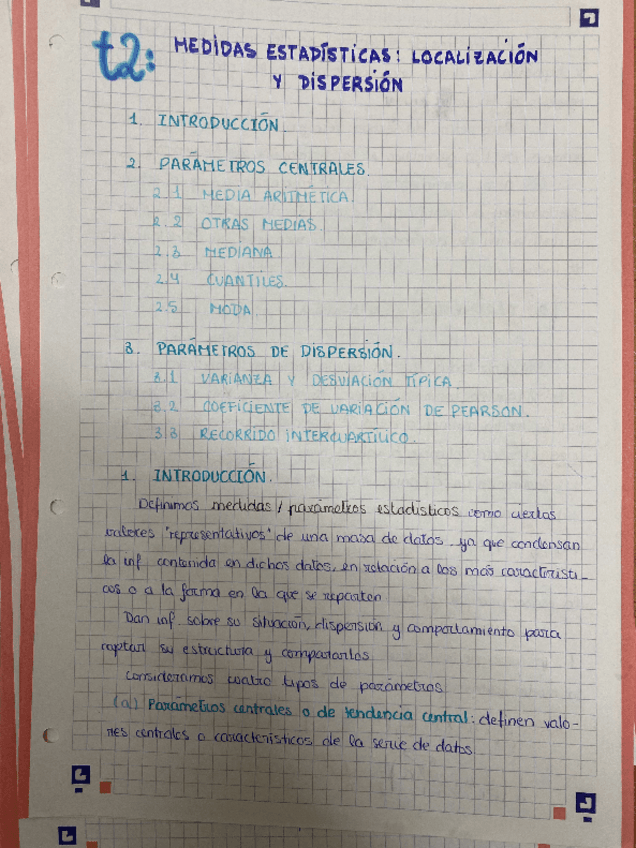 t2: MEDIDAS ESTADÍSTICAS: LOCALIZACIÓN
Y DISPERSIÓN
1. INTRODUCCIÓN.
2. PARÁMETROS CENTRALES.
2.1 MEDIA ARITMÉTICA.
2.2 OTRAS MEDIAS.
2.3 MEDIANA
2.4 CUANTILES.
2.5 MODA
3. PARÁMETROS DE DISPERSIÓN.
3.1 VARIANZA Y DESVIACIÓN TÍPICA
3.2 COEFICIENTE DE VARIACIÓN DE PEARSON.
3.3 RECORRIDO INTERCUARTÍLICO.
1. INTRODUCCIÓN.
Definimos medidas / parámetros estadísticos como ciertos
valores "representativos" de una masa de datos, ya que condensan
la inf. contenida en dichos datos, en relación a los más característi-
cos o a la forma en la que se reparten
Dan inf. sobre su situación, dispersión y comportamiento para
captar su estructura y compararlos
Consideramos cuatro tipos de parámetros
(a) Parámetros centrales o de tendencia central: definen valo-
res centrales o característicos de la serie de datos